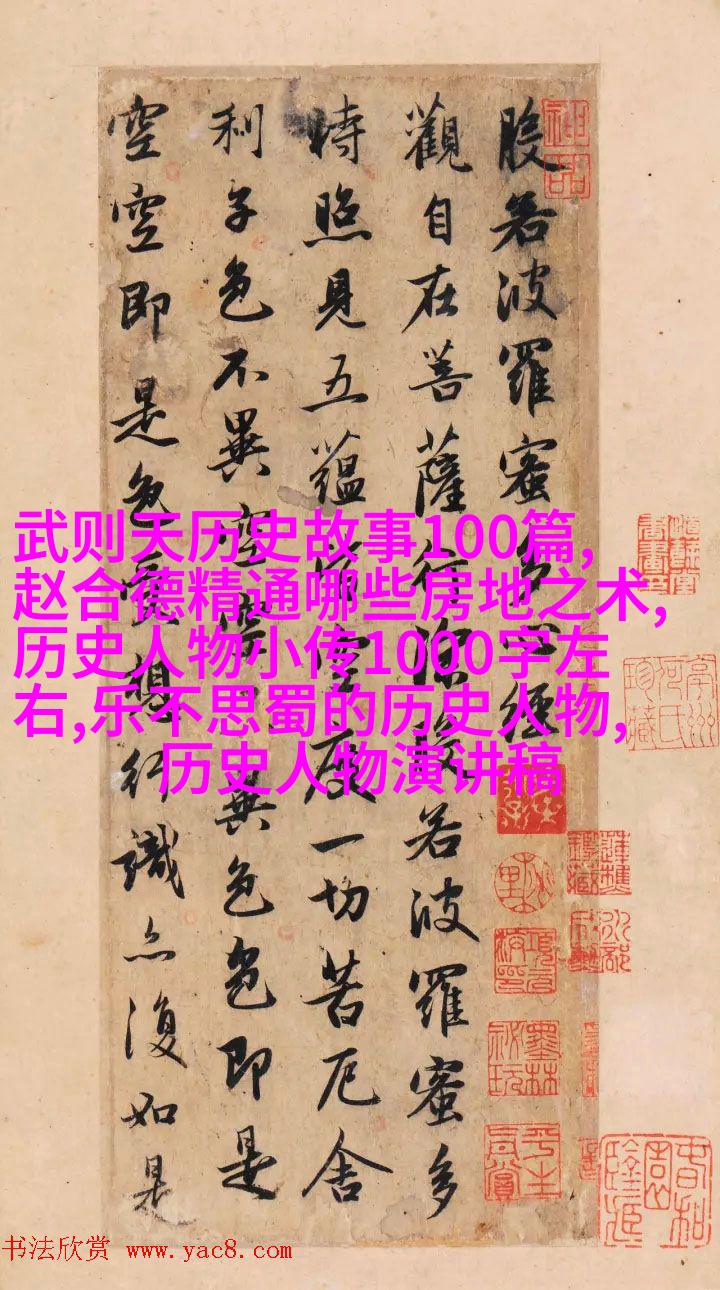 般若波羅蜜多心經
觀自在菩薩行深般若波羅蜜多
時照見五蘊皆空度一切苦厄舍
利子色不異空空不異色色即是
空空即是色受想行識亦復如是
武则天历史故事100篇,
赵合德精通哪些房地之术,
历史人物小传1000字左
右,乐不思蜀的历史人物,
历史人物演讲稿
神品
书法欣赏 www.yac8.com